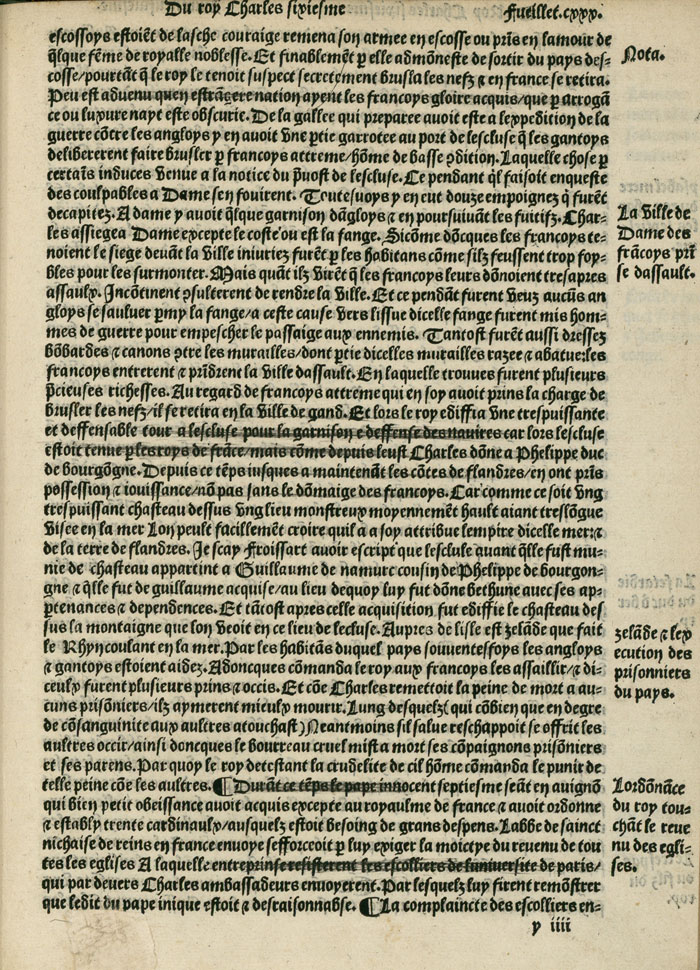 Du roy Charles sixiesme
Fueillet.cxxx.
escossoys estoiēt de lasche couraige remena son armee en escosse ou prīs en lamour de
q̄lque fēme de royalle noblesse. Et finablemēt ꝑ elle admōneste de sortir du pays des⸗
cosse/pourtāt q̄ le roy le tenoit suspect secretement brusla les nefz ⁊ en france se retira.
Peu est aduenu quen estrāgere nation ayent les francoys gloire acquis/que ꝑ arrogā
ce ou luxure nayt este obscurie. De la gallee qui preparee auoit este a lexpedition de la
guerre cōtre les angloys y en auoit vne ꝑtie garrotee au port de lescluse q̄ les gantoys
delibererent faire brusler ꝑ francoys attreme/hōme de basse ꝯdition. Laquelle chose ꝑ
certaīs induces venue a la notice du p̄uost de lescluse. Ce pendāt q̄l faisoit enqueste
des coulpables a Dame sen fouirent. Toutesuoys y en eut douze empoignez q̄ furēt
decapitez. A dame y auoit q̄lque garnison dāgloys ⁊ en poursuiuāt les fuitifz. Char⸗
les assiegea Dame excepte le coste ou est la fange. Sicōme dōcques les francoys te⸗
noient le siege deuāt la ville iniuriez furēt ꝑ les habitans cōme silz feussent trop foy⸗
bles pour les surmonter. Mais quāt ilz virēt q̄ les francoys leurs dōnoient tresapres
assaulx. Incōtinent ꝯsulterent de rendre la ville. Et ce pendāt furent veuz aucūs an
gloys se sauluer ꝑmy la fange/a ceste cause vers lissue dicelle fange furent mis hom⸗
mes de guerre pour empescher le passaige aux ennemis. Tantost furēt aussi dressez
bōbardes ⁊ canons ꝯtre les murailles/dont ꝑtie dicelles murailles razee ⁊ abatue:les
francoys entrerent ⁊ prīdrent la ville dassault. En laquelle trouues furent plusieurs
p̄cieuses richesses. Au regard de francoys attreme qui en soy auoit prins la charge de
brusler les nefz/il se retira en la ville de gand. Et lors le roy ediffia vne trespuissante
et deffensable tour a lescluse pour la garnison e deffense des nauires car lors lescluse
estoit tenue ꝑ les roys de frāce/mais cōme depuis leust Charles dōne a Phelippe duc
de bourgōgne. Depuis ce tēps iusques a maintenāt les cōtes de flandres/en ont prīs
possession ⁊ iouissance/nō pas sans le dōmaige des francoys. Car comme ce soit vng
trespuissant chasteau dessus vng lieu monstreux moyennemēt hault aiant treslōgue
visee en la mer Lon peult facillemēt croire quil a a soy attribue lempire dicelle mer:⁊
de la terre de flandres. Je scay Froissart auoir escript que lescluse quant q̄lle fust mu⸗
nie de chasteau appartint a Guillaume de namure cousin de Phelippe de bourgon⸗
gne ⁊ q̄lle fut de guillaume acquise/au lieu dequoy luy fut dōne bethune auec ses ap⸗
ꝑtenances ⁊ dependences. Et tātost apres celle acquisition fut ediffie le chasteau des
sus la montaigne que lon veoit en ce lieu de lecluse. Aupres de lisle est zelāde que fait
le Rhyn coulant en la mer. Par les habitās duquel pays souuentesfoys les angloys
⁊ gantoys estoient aidez. Adoncques cōmanda le roy aux francoys les assaillir/⁊ di⸗
ceulx furent plusieurs prins ⁊ occis. Et cōe Charles remettoit la peine de mort a au⸗
cuns prisōniers/ilz aymerent mieulx mourir. Lung desquelz( qui cōbien que en degre
de cōsanguinite aux aultres atouchast) Neantmoins sil salue reschappoit se offrit les
aultres occir/ainsi doncques le bourreau cruel mist a mort ses cōpaignons prisōniers
et ses parens. Par quoy le roy detestant la crudelite de cil hōme cōmanda le punir de
telle peine cōe les aultres. ¶ Durāt ce tēps le pape innocent septiesme seāt en auignō
qui bien petit obeissance auoit acquis excepte au royaulme de france ⁊ auoit ordonne
⁊ estably trente cardinaulx/ausquelz estoit besoing de grans despens. Labbe de sainct
nichaise de reins en france enuoye sefforceoit ꝑ luy exiger la moictye du reuenu de tou
tes les eglises A laquelle entreprinse resisterent les escolliers de luniuersite de paris/
qui par deuers Charles ambassadeurs enuoyerent. Par lesquelz luy firent remōstrer
que ledit du pape inique estoit ⁊ desraisonnabse. ¶ La complaincte des escolliers en⸗
y iiii
Nota.
La ville de
Dame des
frācoys pri
se dassault.
zelāde ⁊ lex
ecution des
prisonniers
du pays.
Lordōnāce
du roy tou⸗
chāt le reue
nu des egli⸗
ses.